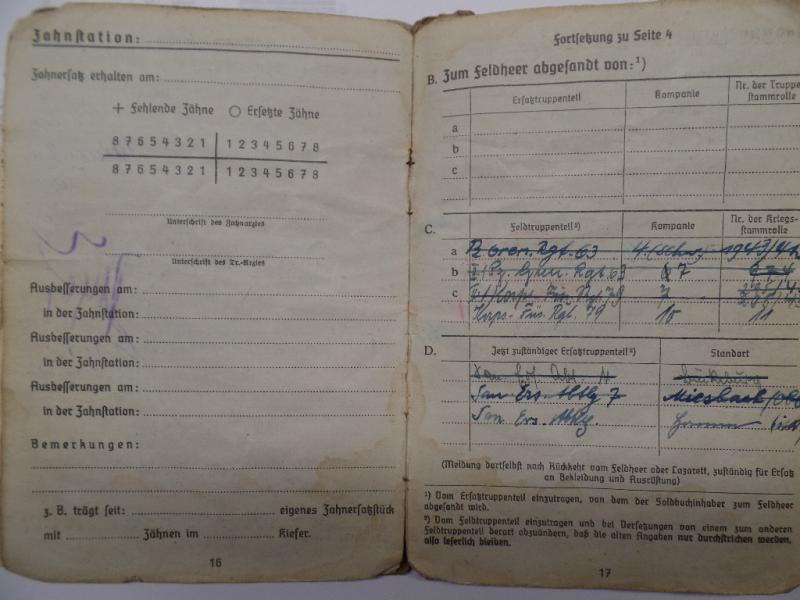 Zahnstation:
Zahnersatz erhalten am:
+ Fehlende Zähne O Ersetzte Zähne
8 7 6 5 4 3 2 1 1 2 3 4 5 6 7 8
8 7 6 5 4 3 2 1 1 2 3 4 5 6 7 8
Unterschrift des Zahnarztes
Unterschrift des Tr.-Arztes
Ausbesserungen am:
in der Zahnstation:
Ausbesserungen am:
in der Zahnstation:
Ausbesserungen am:
in der Zahnstation:
Bemerkungen:
z. B. trägt seit: eigenes Zahnersatzstück
mit Zähnen im Kiefer.
16
Fortsetzung zu Seite 4
B. Zum Feldheer abgesandt von:¹)
Ersatztruppenteil Kompanie Nr. der Truppen
stammrolle
a
b
c
C. Feldtruppenteil²) Kompanie Nr. der Kriegs-
stammrolle
a Pz Gren. Rgt. 63 4.
b Rgt. 63 7
c Rgt. 79 7
Füs. Rgt. 79 10 11
D. Jetzt zuständiger Ersatztruppenteil²) Standort
Bückeburg
San Ers. Abtlg 7 Miesbach
San Ers. Abtlg.
(Meldung dortselbst nach Rückkehr vom Feldheer oder Lazarett, zuständig für Ersatz
an Bekleidung und Ausrüstung)
¹) Vom Ersatztruppenteil einzutragen, von dem der Soldbuchinhaber zum Feldheer
abgesandt wird.
²) Vom Feldtruppenteil einzutragen und bei Versetzungen von einem zum anderen
Feldtruppenteil derart abzuändern, daß die alten Angaben nur durchstrichen werden,
also leserlich bleiben.
17